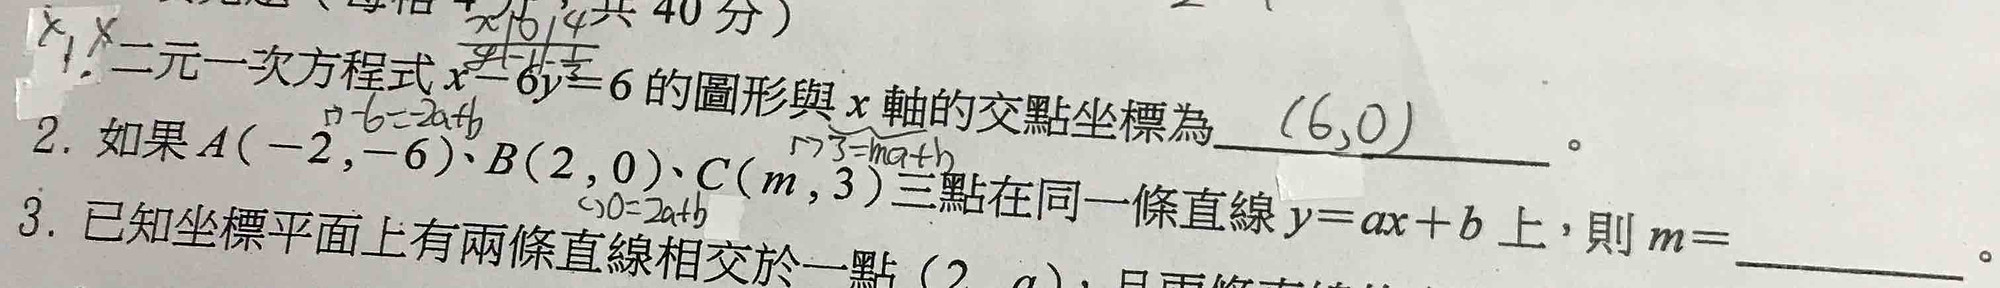 共 40 分）
x | 0 | 4
y | -1 | -1/3
1. 二元一次方程式 x－6y＝6 的圖形與 x 軸的交點坐標為 (6,0) 。
-6=-2a+b
3=ma+b
2. 如果 A(－2,－6)、B(2,0)、C(m,3)三點在同一條直線 y＝ax＋b 上，則 m＝ 。
0=2a+b
3. 已知坐標平面上有兩條直線相交於一點（2